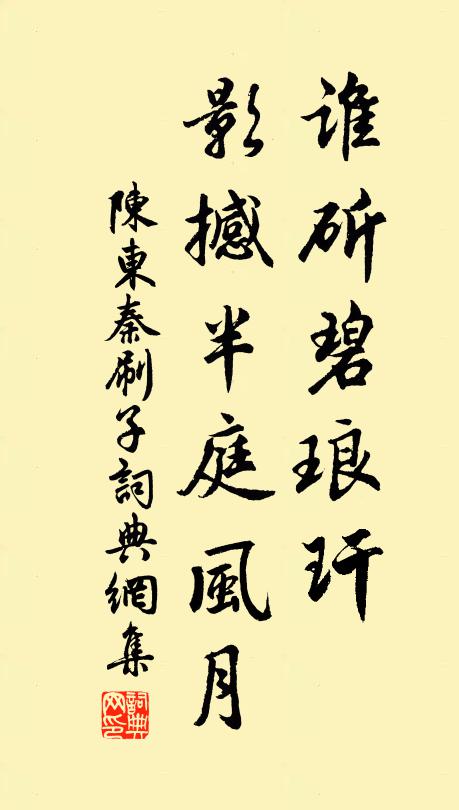 谁斫碧琅玕
影撼半庭風月
陳東秦刷子詞典網集
詞典
网印